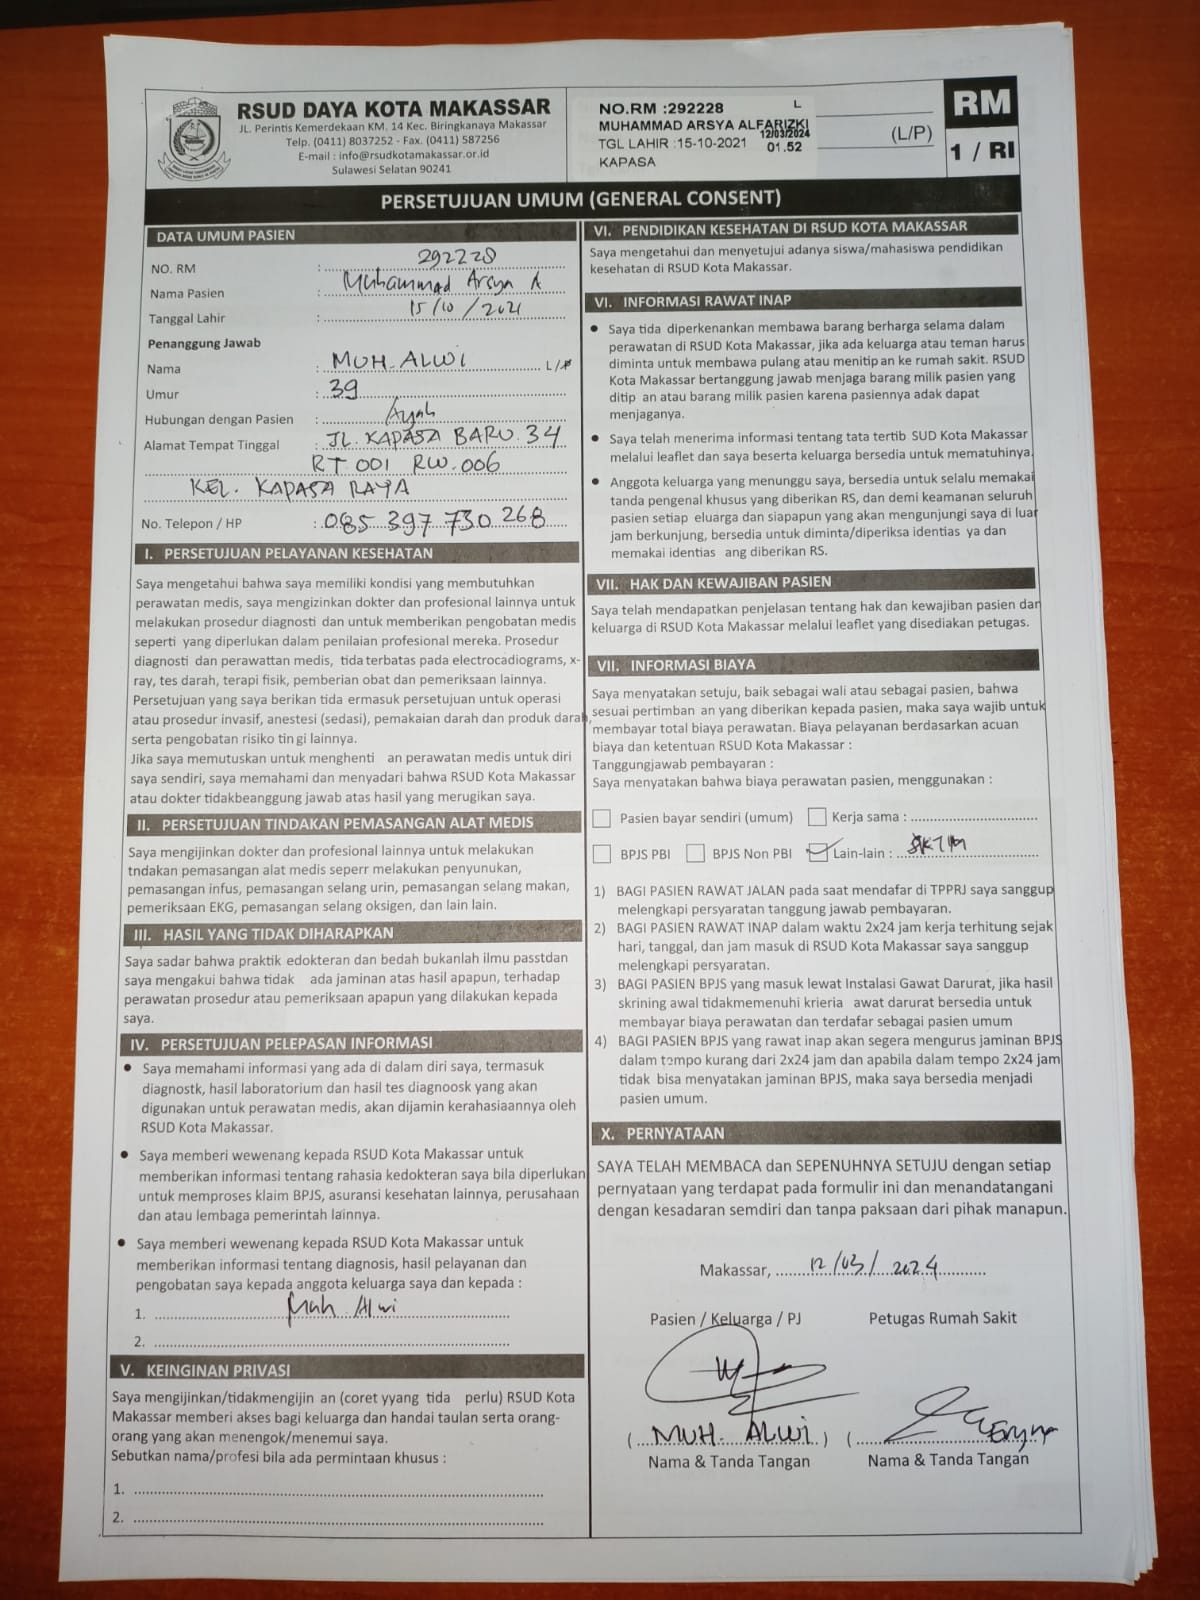 RSUD DAYA KOTA MAKASSAR
JL. Perintis Kemerdekaan KM. 14 Kec. Biringkanaya Makassar
Telp. (0411) 8037252 - Fax. (0411) 587256
E-mail : info@rsudkotamakassar.or.id
Sulawesi Selatan 90241
NO.RM :292228 L
MUHAMMAD ARSYA ALFARIZKI
12/03/2024
TGL LAHIR :15-10-2021 01.52
KAPASA
(L/P)
RM
1 / RI
PERSETUJUAN UMUM (GENERAL CONSENT)
DATA UMUM PASIEN
NO. RM : 292228
Nama Pasien : Muhammad Arsya A
Tanggal Lahir : 15/10/2021
Penanggung Jawab
Nama : MUH. ALWI L/P
Umur : 39
Hubungan dengan Pasien : Ayah
Alamat Tempat Tinggal : JL. KAPASA BARU. 34
RT 001 RW. 006
KEL. KAPASA RAYA
No. Telepon / HP : 085 397 730 268
I. PERSETUJUAN PELAYANAN KESEHATAN
Saya mengetahui bahwa saya memiliki kondisi yang membutuhkan
perawatan medis, saya mengizinkan dokter dan profesional lainnya untuk
melakukan prosedur diagnosti dan untuk memberikan pengobatan medis
seperti yang diperlukan dalam penilaian profesional mereka. Prosedur
diagnosti dan perawattan medis, tida terbatas pada electrocadiograms, x-
ray, tes darah, terapi fisik, pemberian obat dan pemeriksaan lainnya.
Persetujuan yang saya berikan tida ermasuk persetujuan untuk operasi
atau prosedur invasif, anestesi (sedasi), pemakaian darah dan produk darah,
serta pengobatan risiko tin gi lainnya.
Jika saya memutuskan untuk menghenti an perawatan medis untuk diri
saya sendiri, saya memahami dan menyadari bahwa RSUD Kota Makassar
atau dokter tidakbeanggung jawab atas hasil yang merugikan saya.
II. PERSETUJUAN TINDAKAN PEMASANGAN ALAT MEDIS
Saya mengijinkan dokter dan profesional lainnya untuk melakukan
tndakan pemasangan alat medis seperr melakukan penyunukan,
pemasangan infus, pemasangan selang urin, pemasangan selang makan,
pemeriksaan EKG, pemasangan selang oksigen, dan lain lain.
III. HASIL YANG TIDAK DIHARAPKAN
Saya sadar bahwa praktik edokteran dan bedah bukanlah ilmu passtdan
saya mengakui bahwa tidak ada jaminan atas hasil apapun, terhadap
perawatan prosedur atau pemeriksaan apapun yang dilakukan kepada
saya.
IV. PERSETUJUAN PELEPASAN INFORMASI
• Saya memahami informasi yang ada di dalam diri saya, termasuk
diagnostk, hasil laboratorium dan hasil tes diagnoosk yang akan
digunakan untuk perawatan medis, akan dijamin kerahasiaannya oleh
RSUD Kota Makassar.
• Saya memberi wewenang kepada RSUD Kota Makassar untuk
memberikan informasi tentang rahasia kedokteran saya bila diperlukan
untuk memproses klaim BPJS, asuransi kesehatan lainnya, perusahaan
dan atau lembaga pemerintah lainnya.
• Saya memberi wewenang kepada RSUD Kota Makassar untuk
memberikan informasi tentang diagnosis, hasil pelayanan dan
pengobatan saya kepada anggota keluarga saya dan kepada :
1. Muh Alwi
2.
V. KEINGINAN PRIVASI
Saya mengijinkan/tidakmengijin an (coret yyang tida perlu) RSUD Kota
Makassar memberi akses bagi keluarga dan handai taulan serta orang-
orang yang akan menengok/menemui saya.
Sebutkan nama/profesi bila ada permintaan khusus :
1.
2.
VI. PENDIDIKAN KESEHATAN DI RSUD KOTA MAKASSAR
Saya mengetahui dan menyetujui adanya siswa/mahasiswa pendidikan
kesehatan di RSUD Kota Makassar.
VI. INFORMASI RAWAT INAP
• Saya tida diperkenankan membawa barang berharga selama dalam
perawatan di RSUD Kota Makassar, jika ada keluarga atau teman harus
diminta untuk membawa pulang atau menitip an ke rumah sakit. RSUD
Kota Makassar bertanggung jawab menjaga barang milik pasien yang
ditip an atau barang milik pasien karena pasiennya adak dapat
menjaganya.
• Saya telah menerima informasi tentang tata tertib SUD Kota Makassar
melalui leaflet dan saya beserta keluarga bersedia untuk mematuhinya.
• Anggota keluarga yang menunggu saya, bersedia untuk selalu memakai
tanda pengenal khusus yang diberikan RS, dan demi keamanan seluruh
pasien setiap eluarga dan siapapun yang akan mengunjungi saya di luar
jam berkunjung, bersedia untuk diminta/diperiksa identias ya dan
memakai identias ang diberikan RS.
VII. HAK DAN KEWAJIBAN PASIEN
Saya telah mendapatkan penjelasan tentang hak dan kewajiban pasien dan
keluarga di RSUD Kota Makassar melalui leaflet yang disediakan petugas.
VII. INFORMASI BIAYA
Saya menyatakan setuju, baik sebagai wali atau sebagai pasien, bahwa
sesuai pertimban an yang diberikan kepada pasien, maka saya wajib untuk
membayar total biaya perawatan. Biaya pelayanan berdasarkan acuan
biaya dan ketentuan RSUD Kota Makassar :
Tanggungjawab pembayaran :
Saya menyatakan bahwa biaya perawatan pasien, menggunakan :
Pasien bayar sendiri (umum) Kerja sama :
BPJS PBI BPJS Non PBI Lain-lain :
1) BAGI PASIEN RAWAT JALAN pada saat mendafar di TPPRJ saya sanggup
melengkapi persyaratan tanggung jawab pembayaran.
2) BAGI PASIEN RAWAT INAP dalam waktu 2x24 jam kerja terhitung sejak
hari, tanggal, dan jam masuk di RSUD Kota Makassar saya sanggup
melengkapi persyaratan.
3) BAGI PASIEN BPJS yang masuk lewat Instalasi Gawat Darurat, jika hasil
skrining awal tidakmemenuhi krieria awat darurat bersedia untuk
membayar biaya perawatan dan terdafar sebagai pasien umum
4) BAGI PASIEN BPJS yang rawat inap akan segera mengurus jaminan BPJS
dalam tempo kurang dari 2x24 jam dan apabila dalam tempo 2x24 jam
tidak bisa menyatakan jaminan BPJS, maka saya bersedia menjadi
pasien umum.
X. PERNYATAAN
SAYA TELAH MEMBACA dan SEPENUHNYA SETUJU dengan setiap
pernyataan yang terdapat pada formulir ini dan menandatangani
dengan kesadaran semdiri dan tanpa paksaan dari pihak manapun.
Makassar, 12/03/2024
Pasien / Keluarga / PJ Petugas Rumah Sakit
( MUH. ALWI ) (
Nama & Tanda Tangan Nama & Tanda Tangan